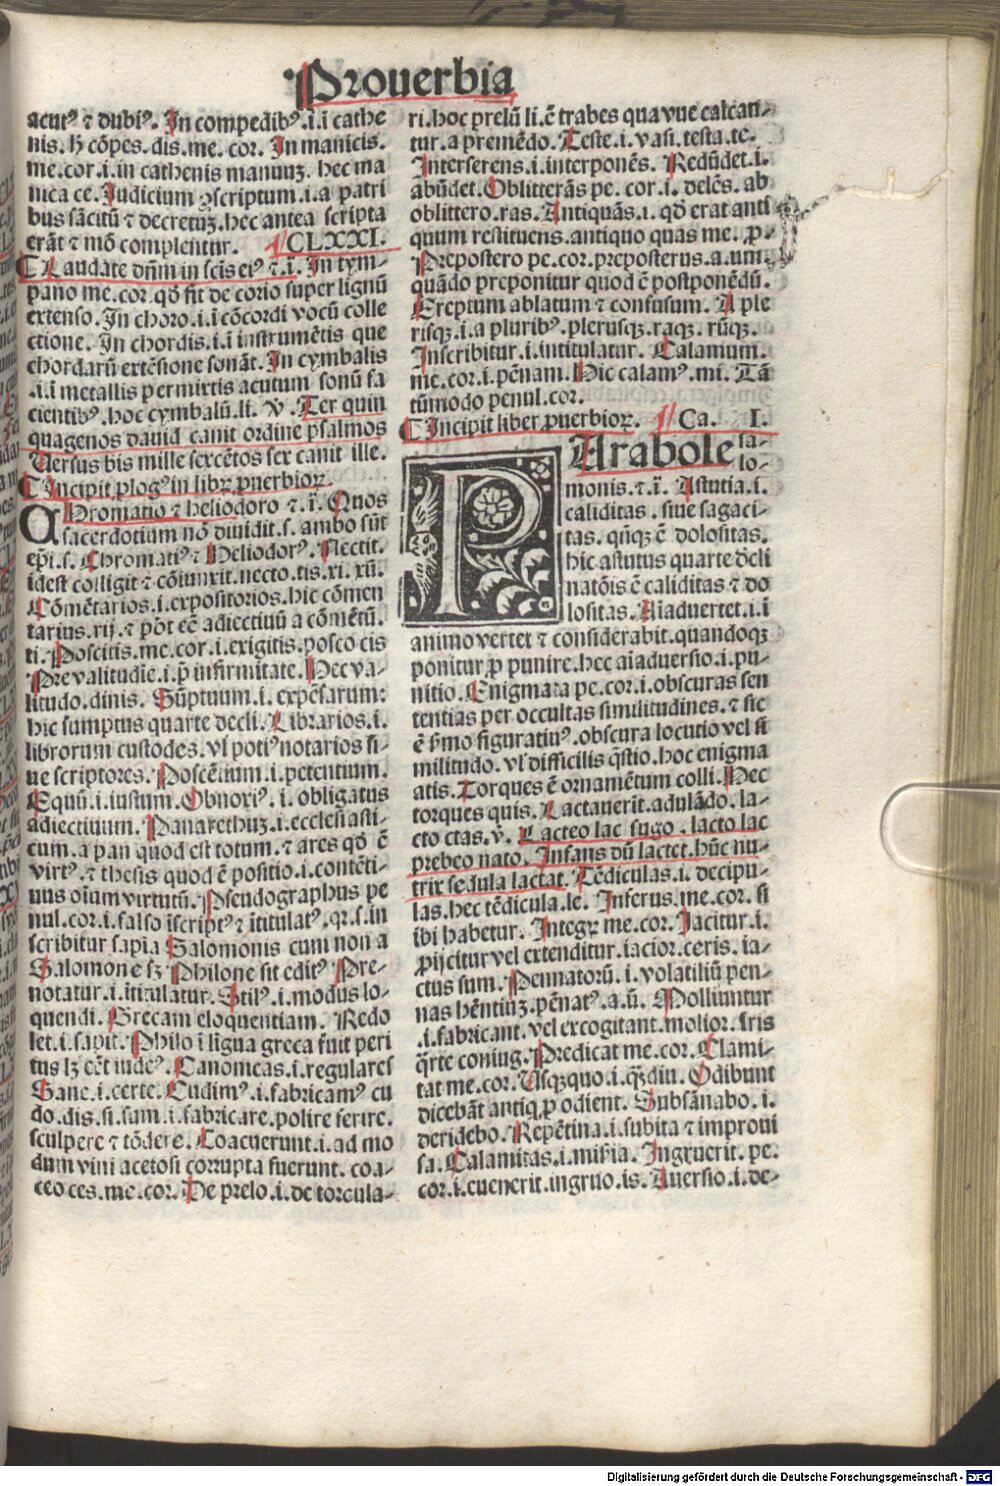 Prouerbia
acutꝰ ⁊ dubiꝰ. In compedibꝰ.i.ī cathe
nis. h̄ cōpes. dis. me. cor. In manicis.
me. cor. i. in cathenis manuuꝫ. hec ma
nica ce. Iudicium ꝯscriptum .i. a patri
bus sācitū ⁊ decretuꝫ. hec antea scripta
erāt ⁊ mō complentur. CLXXI.
Laudate dn̄m in scis eiꝰ ⁊.ī. In tym-
pano me. cor. qd̄ fit de corio super lignū
extenso. In choro .i. ī cōcordi vocū colle
ctione. In chordis .i. ī instrumētis que
chordarū extēsione sonāt. In cymbalis
.i. ī metallis permixtis acutum sonū fa
cientibꝰ. hoc cymbalū. li. v. Ter quin
quagenos dauid canit ordine psalmos
Uersus bis mille sexcētos sex canit ille.
Incipit plogꝰ in libꝝ ꝓuerbioꝝ.
Chromatio ⁊ heliodoro ⁊.ī. Quos
sacerdotium nō diuidit. s. ambo sūt
ep̄i. s. Chromatiꝰ ⁊ Heliodorꝰ. Nectit.
idest colligit ⁊ cōiunxit. necto. tis. xi. xū.
Cōmētarios .i. expositorios. hic cōmen
tarius. rij. ⁊ pōt eē adiectiuū a cōmētū.
ti. Poscitis. me. cor .i. exigitis. posco cis
Pre valitudīe .i. p̄ infirmitate. Hec va-
litudo. dinis. Sūptuum .i. expēsarum:
hic sumptus quarte decli. Librarios .i.
librorum custodes. vl̄ potiꝰ notarios si-
ue scriptores. Poscētium .i. petentium.
Equū .i. iustum. Obnoxiꝰ .i. obligatus
adiectiuum. Panarethuꝫ .i. ecclesiasti-
cum. a pan quod est totum. ⁊ ares qd̄ ē
virtꝰ. ⁊ thesis quod ē positio .i. contēti-
uus oīum virtutū. Pseudographus pe
nul. cor .i. falso īscriptꝰ ⁊ ītitulatꝰ. qr. s. in
scribitur sapīa Salomonis cum non a
Salomone sꝫ Philone sit editꝰ. Pre-
notatur .i. ītitulatur. Stilꝰ .i. modus lo-
quendi. Grecam eloquentiam. Redo
let .i. sapit. Philo ī ligua greca fuit peri
tus lꝫ eēt iudeꝰ. Canonicas .i. regulares
Sane .i. certe. Cudimꝰ .i. fabricamꝰ cu
do. dis. si. sum .i. fabricare. polire ferire.
sculpere ⁊ tōdere. Coacuerunt .i. ad mo
dum vini acetosi corrupta fuerunt. coa-
ceo ces. me. cor. De prelo .i. de torcula-
ri. hoc prelū li. ē trabes qua vue calcan-
tur. a premēdo. Teste .i. vasi. testa. te.
Interserens .i. interponēs. Redūdet .i.
abūdet. Oblitterās pe. cor .i. delēs. ab
oblittero. ras. Antiquās .i. qd̄ erat anti
quum restituens. antiquo quas me. ꝓ.
Prepostero pe. cor. preposterus. a. um.
quādo preponitur quod ē postponēdū.
Ereptum ablatum ⁊ confusum. A ple
risqꝫ .i. a pluribꝰ. plerusqꝫ. raqꝫ. rūqꝫ.
Inscribitur .i. intitulatur. Calamum.
me. cor .i. pēnam. Hic calamꝰ. mi. Tā
tūmodo penul. cor.
Incipit liber ꝓuerbioꝝ. Ca. I.
PArabole sa-
lo-
monis. ⁊.ī. Astutia .i.
caliditas. siue sagaci-
tas. qn̄qꝫ ē dolositas.
hic astutus quarte decli
natōis ē caliditas ⁊ do
lositas. Aīaduertet .i. ī
animo vertet ⁊ considerabit. quandoqꝫ
ponitur ꝓ punire. hec aīaduersio .i. pu-
nitio. Enigmata pe. cor .i. obscuras sen
tentias per occultas similitudines. ⁊ sic
ē ẜmo figuratiuꝰ. obscura locutio vel si
militudo. vl̄ difficilis q̄stio. hoc enigma
atis. Torques ē ornamētum colli. Hec
torques quis. Lactauerit. adulādo. la-
cto ctas. v. Lacteo lac sugo. lacto lac
prebeo nato. Infans dū lactet. hūc nu-
trix sedula lactat. Tēdiculas .i. decipu-
las. hec tēdicula. le. Inferus. me. cor. si
ibi habetur. Integꝝ me. cor. Iacitur .i.
ꝓijcitur vel extenditur. iacior. ceris. ia-
ctus sum. Pennatorū .i. volatiliū pen-
nas hētiuꝫ. pēnatꝰ. a. ū. Moliuntur
.i. fabricant. vel excogitant. molior. iris
q̄rte coniug. Predicat me. cor. Clami-
tat me. cor. Usqꝫquo .i. q̄ꝫdiu. Odibunt
dicebāt antiq̇ ꝓ odient. Subsānabo .i.
deridebo. Repētina .i. subita ⁊ improui
sa. Calamitas .i. miẜia. Ingruerit. pe.
cor .i. euenerit. ingruo. is. Auersio .i. de-
Digitalisierung gefördert durch die Deutsche Forschungsgemeinschaft - DFG